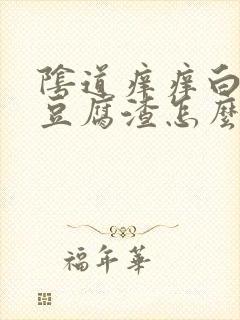 陰道痒痒白
豆腐渣怎麼
福年華